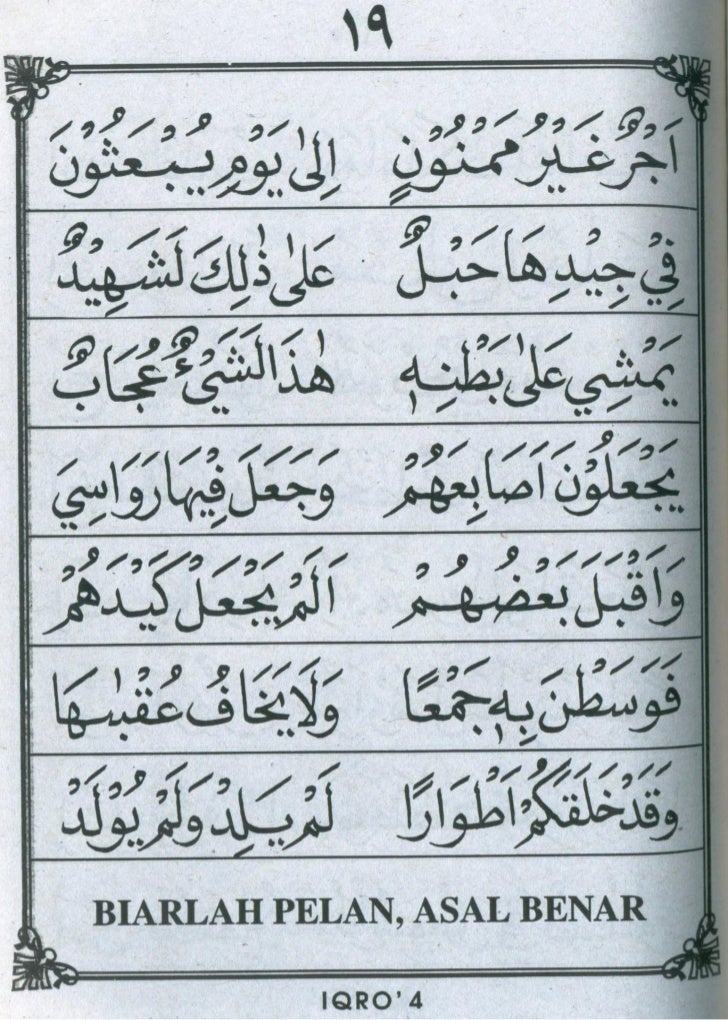 ١٩
اَجْرٌ غَيْرُ مَمْنُوْنٍ اِلٰى يَوْمِ يُبْعَثُوْنَ
فِيْ جِيْدِهَا حَبْلٌ عَلٰى ذٰلِكَ لَشَهِيْدٌ
يَمْشِي عَلٰى بَطْنِهٖ هٰذَا لَشَيْءٌ عُجَابٌ
يَجْعَلُوْنَ اَصَابِعَهُمْ وَجَعَلَ فِيْهَا رَوَاسِيَ
وَاَقْبَلَ بَعْضُهُمْ اَلَمْ يَجْعَلْ كَيْدَهُمْ
فَوَسَطْنَ بِهٖ جَمْعًا وَلَا يَخَافُ عُقْبٰىهَا
وَقَدْ خَلَقَكُمْ اَطْوَارًا لَمْ يَلِدْ وَلَمْ يُوْلَدْ
BIARLAH PELAN, ASAL BENAR
IQRO' 4